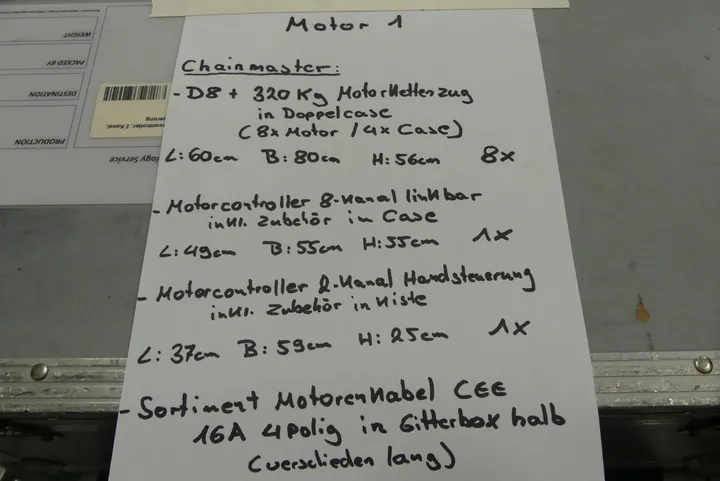 Motor 1
Chainmaster:
- D8 + 320 Kg Motorkettenzug
in Doppelcase
(8x Motor / 4x Case)
L: 60cm B: 80cm H: 56cm 8x
- Motorcontroller 8-Kanal linkbar
inkl. Zubehör in Case
L: 49cm B: 55cm H: 55cm 1x
- Motorcontroller 2-Kanal Handsteuerung
inkl. Zubehör in Kiste
L: 37cm B: 59cm H: 25cm 1x
- Sortiment Motorenkabel CEE
16A 4polig in Gitterbox halb
(verschieden lang)
WEIGHT
PACKED BY
DESTINATION
PRODUCTION